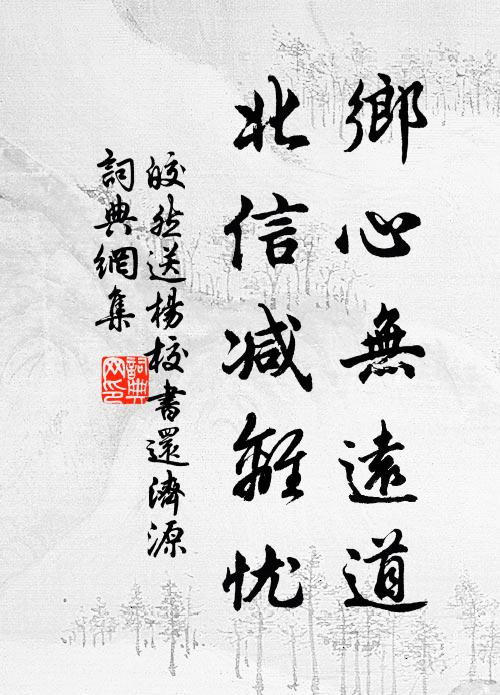 鄉心無遠道
北信减離忧
皎然送楊校書還濟源
詞典網集
詞典网印